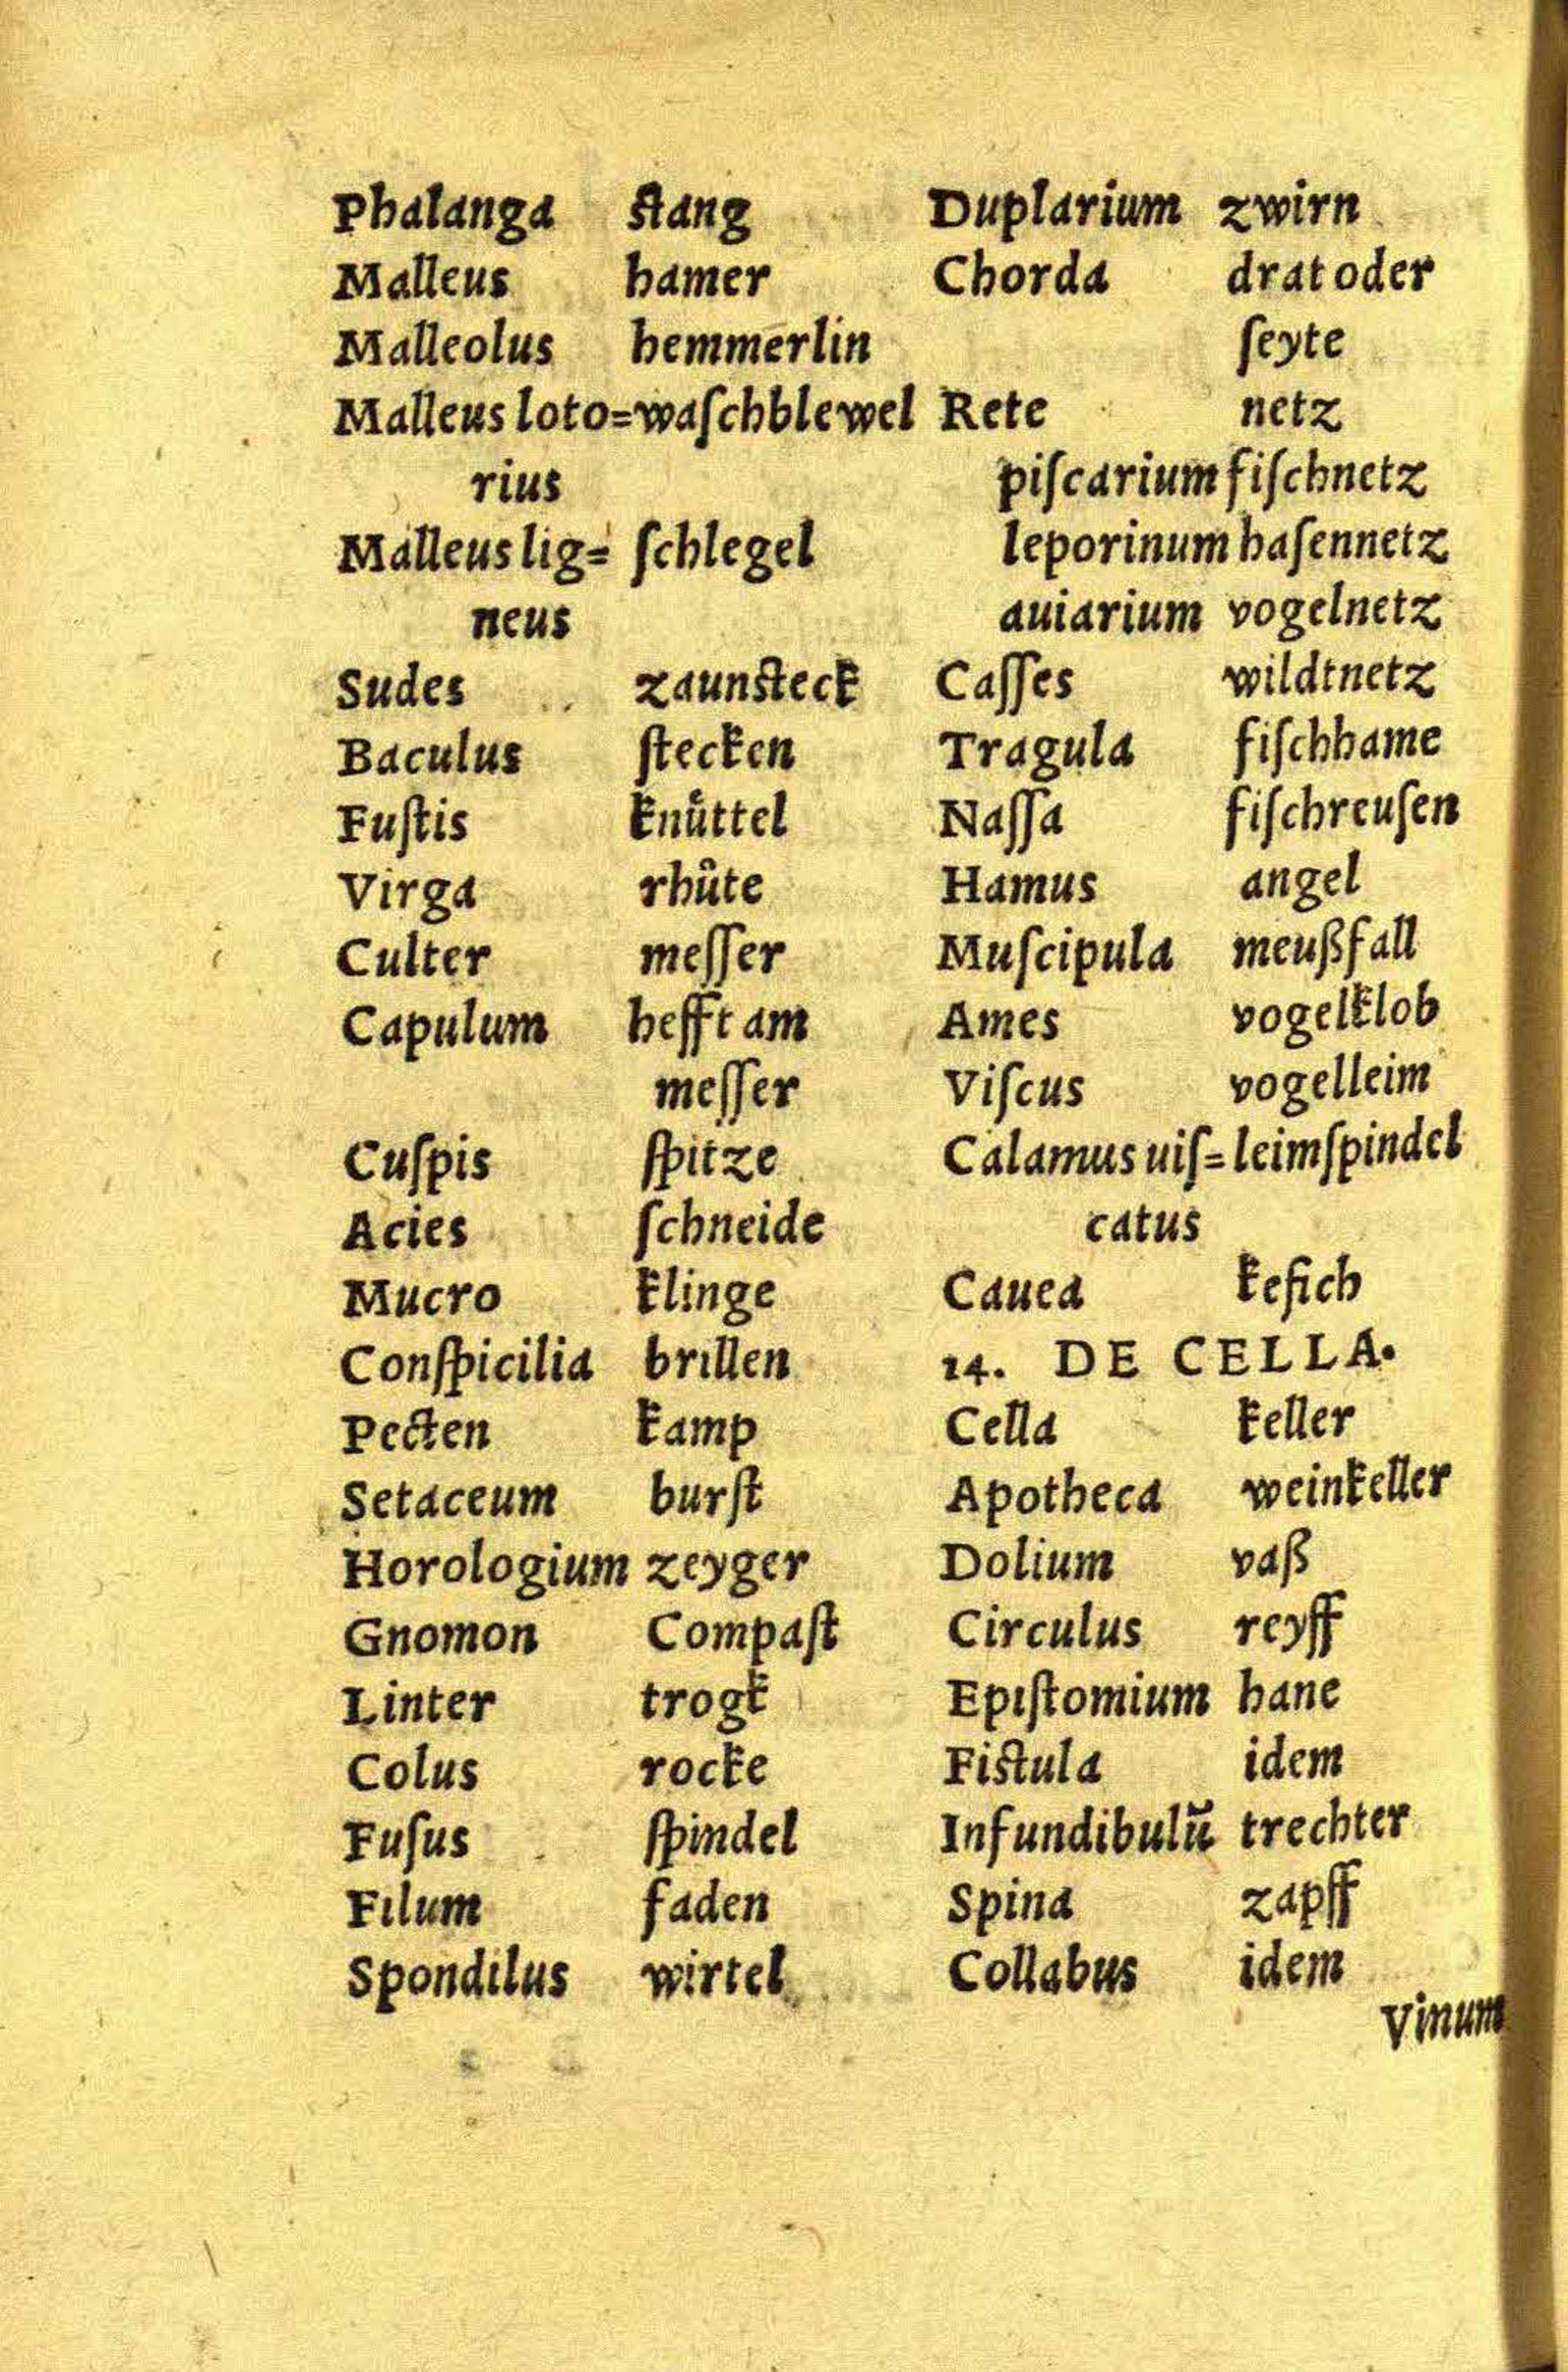 Phalanga ſtang
Malleus hamer
Malleolus hemmerlin
Malleus loto=waſchblewel
rius
Malleus lig= ſchlegel
neus
Sudes zaunſteck
Baculus ſtecken
Fuſtis knuͤttel
Virga rhůte
Culter meſſer
Capulum hefft am
meſſer
Cuſpis ſpitze
Acies ſchneide
Mucro klinge
Conſpicilia brillen
Pecten kamp
Setaceum burſt
Horologium zeyger
Gnomon Compaſt
Linter trogk
Colus rocke
Fuſus ſpindel
Filum faden
Spondilus wirtel
Duplarium zwirn
Chorda drat oder
ſeyte
Rete netz
piſcarium fiſchnetz
leporinum haſennetz
auiarium vogelnetz
Caſſes wildtnetz
Tragula fiſchhame
Naſſa fiſchreuſen
Hamus angel
Muſcipula meußfall
Ames vogelklob
Viſcus vogelleim
Calamus uiſ= leimſpindel
catus
Cauea kefich
14. DE CELLA.
Cella keller
Apotheca weinkeller
Dolium vaß
Circulus reyff
Epiſtomium hane
Fiſtula idem
Infundibulũ trechter
Spina zapff
Collabus idem
Vinum